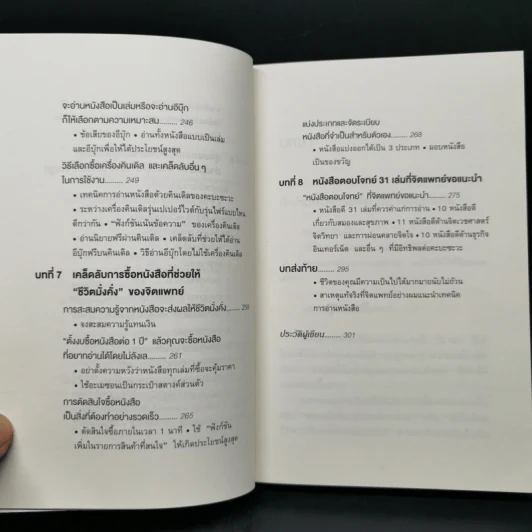 จะอ่านหนังสือเป็นเล่มหรือจะอ่านอีบุ๊ก
ก็ให้เลือกตามความเหมาะสม......... 246
• ข้อเสียของอีบุ๊ก • อ่านทั้งหนังสือแบบเป็นเล่ม
และอีบุ๊กเพื่อให้ได้ประโยชน์สูงสุด
วิธีเลือกซื้อเครื่องคินเดิล และเคล็ดลับอื่น ๆ
ในการใช้งาน......... 249
• เทคนิคการอ่านหนังสือด้วยคินเดิลของคะบะซะวะ
• ระหว่างเครื่องคินเดิลรุ่นเปเปอร์ไวต์กับรุ่นไฟร์แบบไหน
ดีกว่ากัน • “ฟังก์ชันเน้นข้อความ” ของเครื่องคินเดิล
• อ่านนิยายฟรีผ่านคินเดิล • เคล็ดลับที่ช่วยให้ได้อ่าน
อีบุ๊กฟรีบนคินเดิล • วิธีอ่านอีบุ๊กโดยไม่ใช้เครื่องคินเดิล
บทที่ 7 เคล็ดลับการซื้อหนังสือที่ช่วยให้
“ชีวิตมั่งคั่ง” ของจิตแพทย์
การสะสมความรู้จากหนังสือจะส่งผลให้ชีวิตมั่งคั่ง......... 258
• จงสะสมความรู้แทนเงิน
“ตั้งงบซื้อหนังสือต่อ 1 ปี” แล้วคุณจะซื้อหนังสือ
ที่อยากอ่านได้โดยไม่ลังเล......... 261
• อย่าตั้งความหวังว่าหนังสือทุกเล่มที่ซื้อจะคุ้มราคา
• ใช้อะเมซอนเป็นกระเป๋าสตางค์ส่วนตัว
การตัดสินใจซื้อหนังสือ
เป็นสิ่งที่ต้องทำอย่างรวดเร็ว......... 265
• ตัดสินใจซื้อภายในเวลา 1 นาที • ใช้ “ฟังก์ชัน
เพิ่มในรายการสินค้าที่สนใจ” ให้เกิดประโยชน์สูงสุด
แบ่งประเภทและจัดระเบียบ
หนังสือที่จำเป็นสำหรับตัวเอง......... 268
• หนังสือแบ่งออกได้เป็น 3 ประเภท • มอบหนังสือ
เป็นของขวัญ
บทที่ 8 หนังสือตอบโจทย์ 31 เล่มที่จิตแพทย์ขอแนะนำ
“หนังสือตอบโจทย์” ที่จิตแพทย์ขอแนะนำ......... 275
• หนังสือดี 31 เล่มที่ควรค่าแก่การอ่าน • 10 หนังสือดี
เกี่ยวกับสมองและสุขภาพ • 11 หนังสือดีด้านจิตเวชศาสตร์
จิตวิทยา และการผ่อนคลายจิตใจ • 10 หนังสือดีด้านธุรกิจ
อินเทอร์เน็ต และอื่น ๆ ที่มีอิทธิพลต่อคะบะซะวะ
บทส่งท้าย......... 295
• ชีวิตของคุณมีความเป็นไปได้มากมายนับไม่ถ้วน
• สาเหตุแท้จริงที่จิตแพทย์อย่างผมแนะนำเทคนิค
การอ่านหนังสือ
ประวัติผู้เขียน......... 301